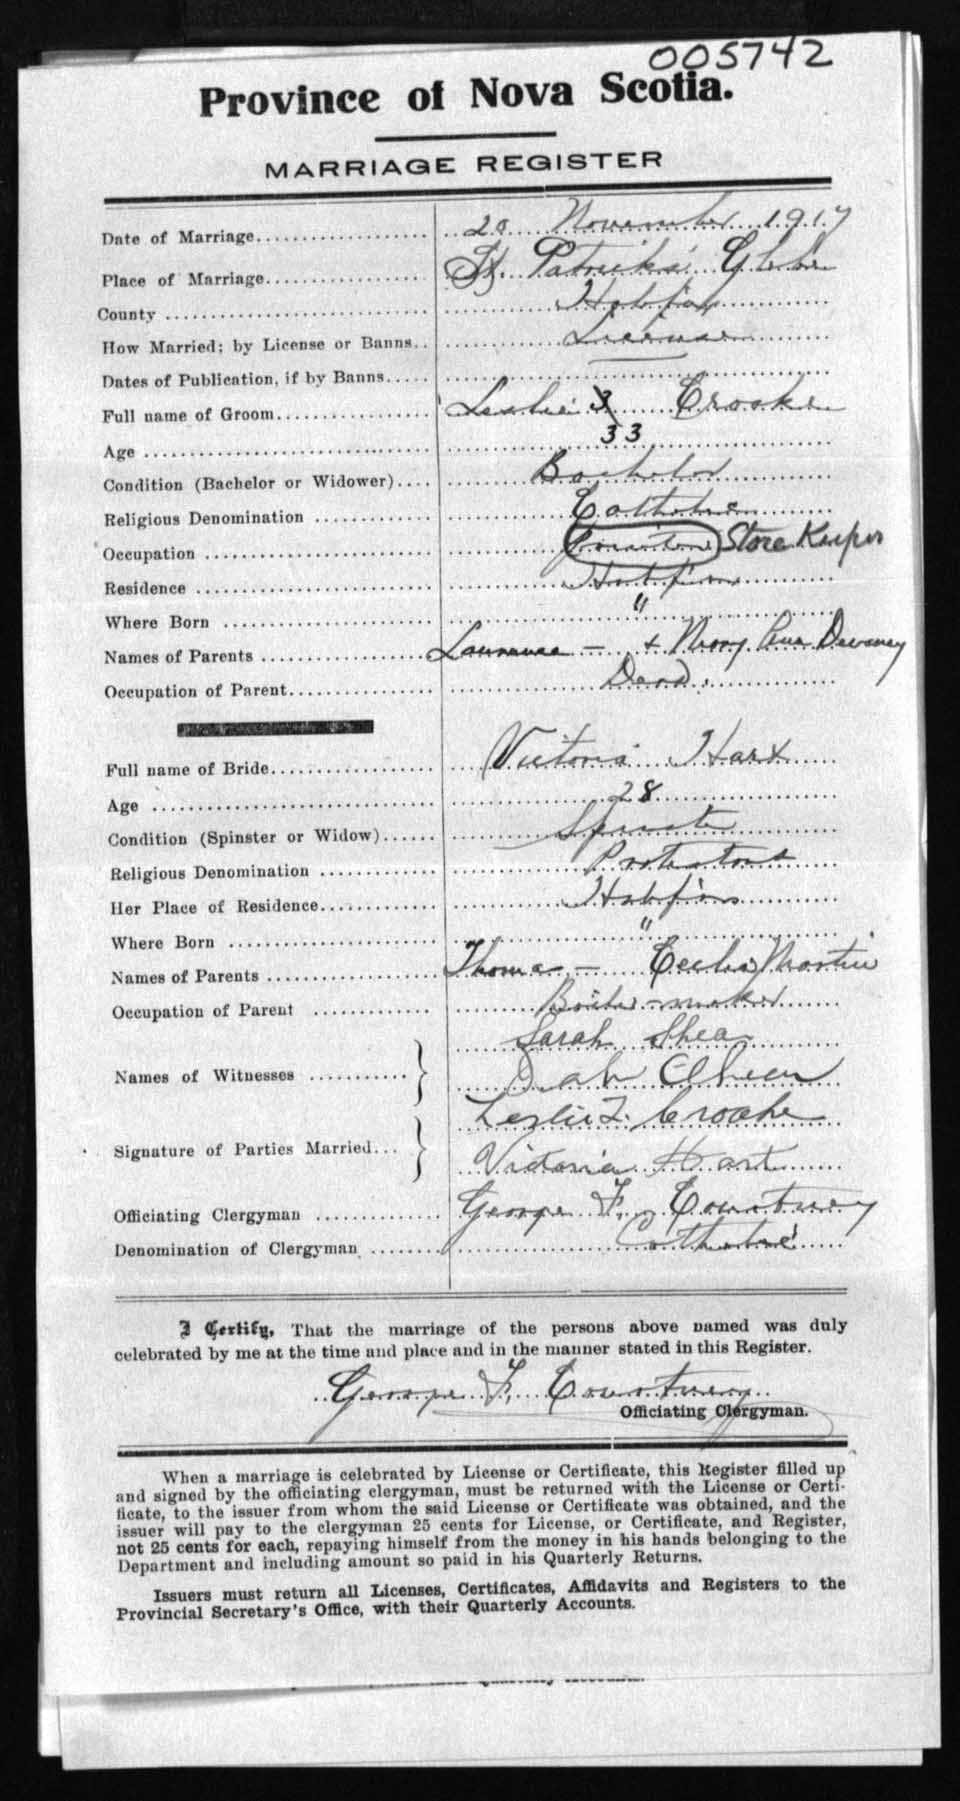 005742
Province of Nova Scotia.
MARRIAGE REGISTER
Date of Marriage 20 November 1917
Place of Marriage St. Patrick's Glebe
County Halifax
How Married; by License or Banns License
Dates of Publication, if by Banns —
Full name of Groom Leslie Crooke
Age 33
Condition (Bachelor or Widower) Bachelor
Religious Denomination Catholic
Occupation Store Keeper
Residence Halifax
Where Born "
Names of Parents Laurence — + Mary Ann Devaney
Occupation of Parent Dead.
Full name of Bride Victoria Hart
Age 28
Condition (Spinster or Widow) Spinster
Religious Denomination Protestant
Her Place of Residence Halifax
Where Born "
Names of Parents Thomas — Cecelia Martin
Occupation of Parent Boiler-maker
Sarah Shea
Names of Witnesses }
Leslie Crooke
Signature of Parties Married }
Victoria Hart
Officiating Clergyman George F. Courtney
Denomination of Clergyman Catholic
I Certify, That the marriage of the persons above named was duly
celebrated by me at the time and place and in the manner stated in this Register.
George F. Courtney
Officiating Clergyman.
When a marriage is celebrated by License or Certificate, this Register filled up
and signed by the officiating clergyman, must be returned with the License or Certi-
ficate, to the issuer from whom the said License or Certificate was obtained, and the
issuer will pay to the clergyman 25 cents for License, or Certificate, and Register,
not 25 cents for each, repaying himself from the money in his hands belonging to the
Department and including amount so paid in his Quarterly Returns.
Issuers must return all Licenses, Certificates, Affidavits and Registers to the
Provincial Secretary's Office, with their Quarterly Accounts.